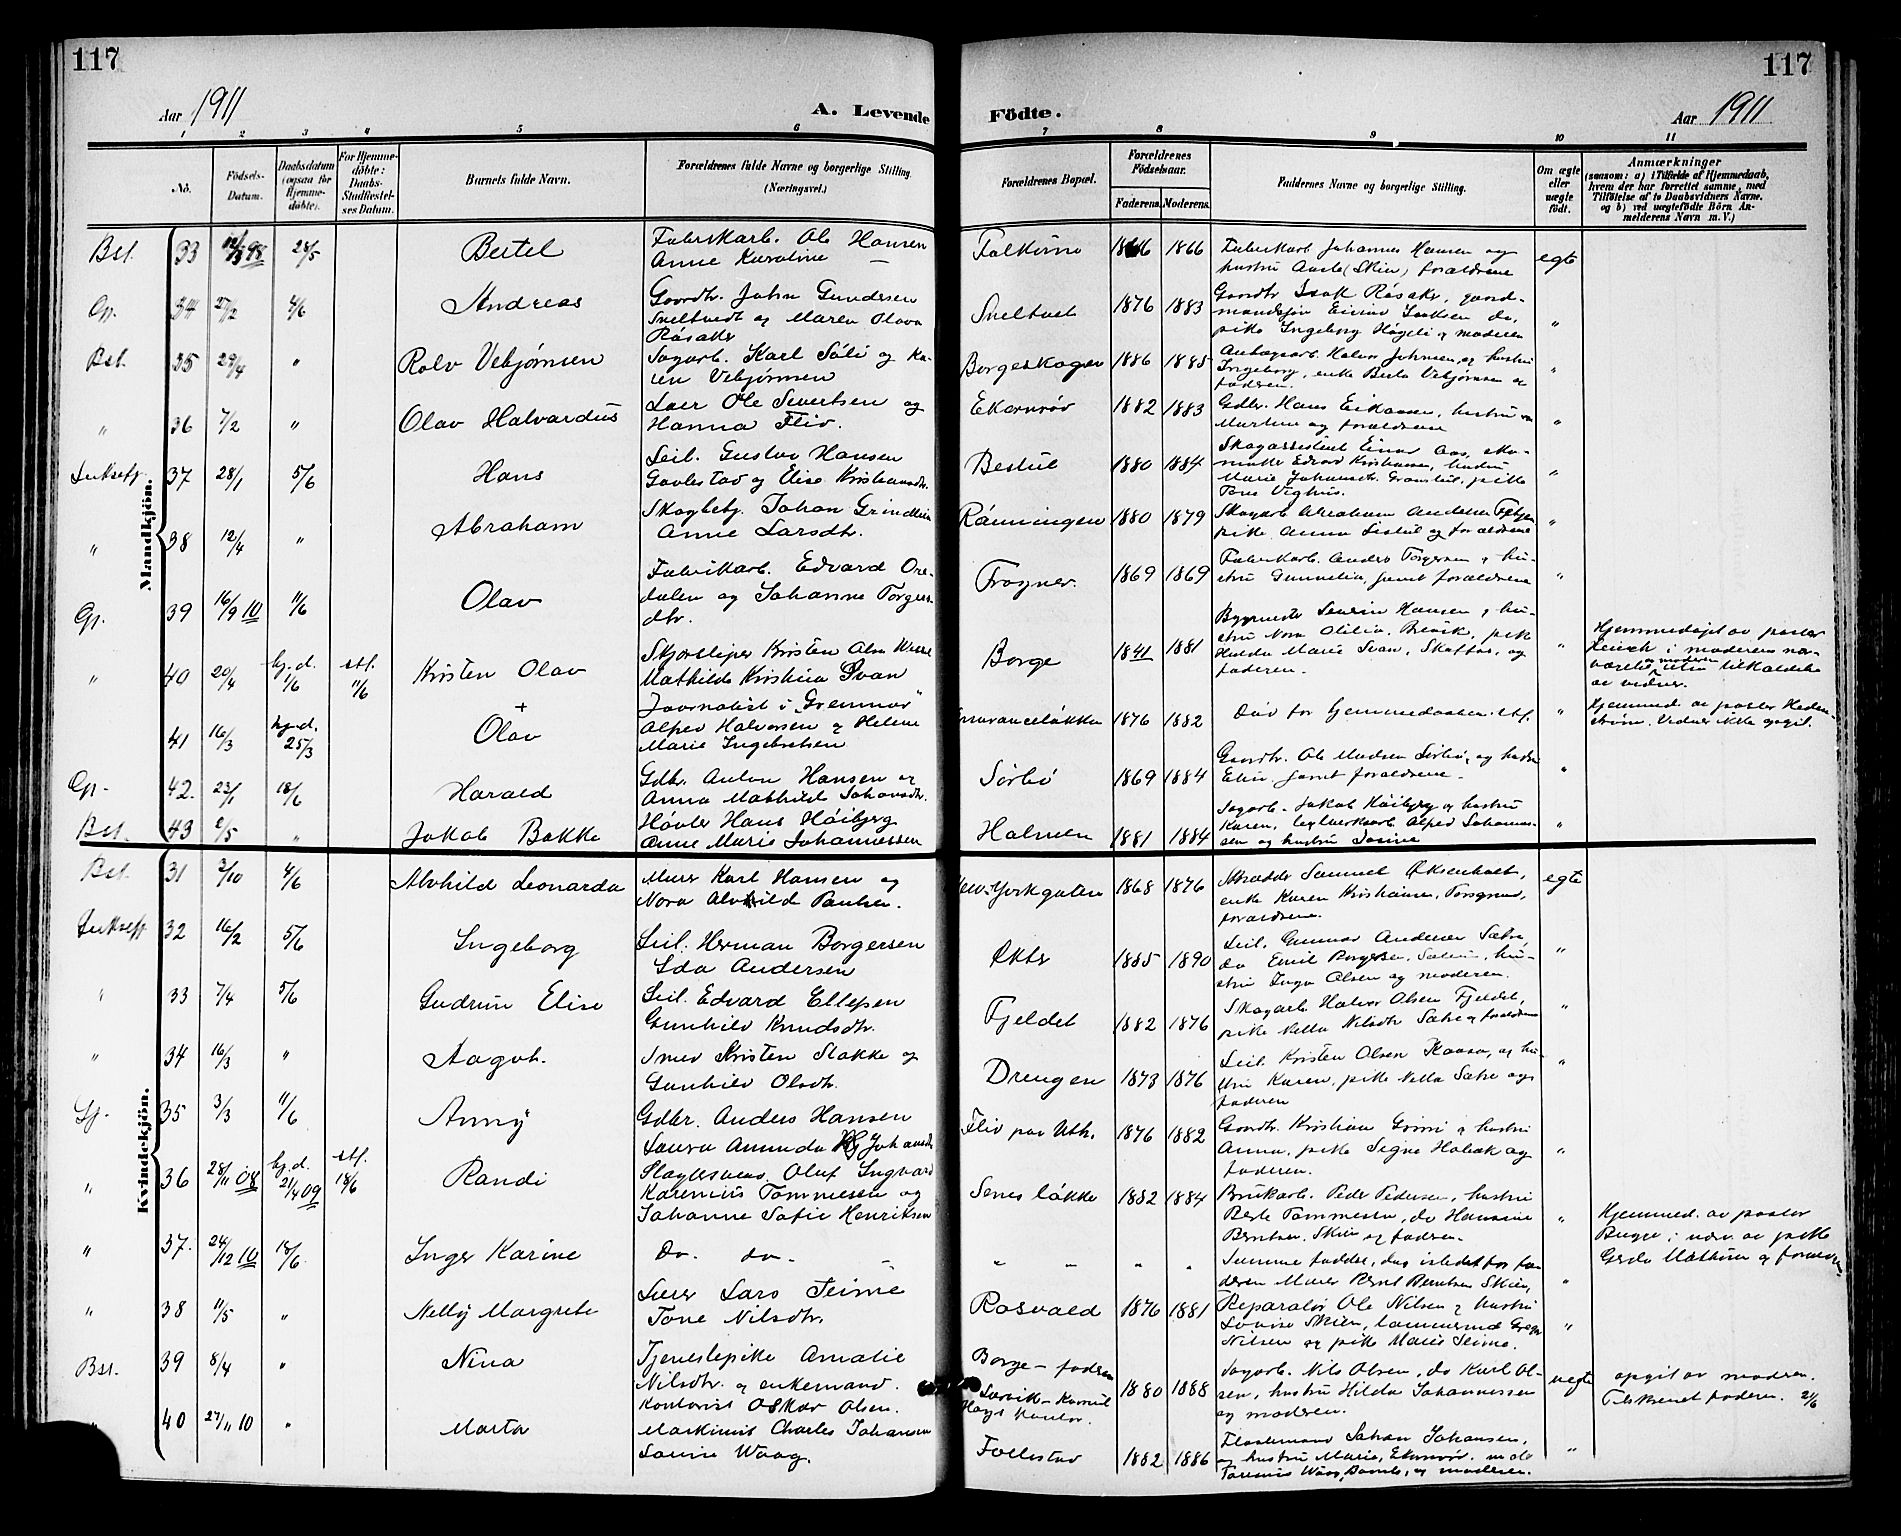 117
117
Aar 1911
A. Levende
Födte.
Aar 1911
1 2 3 4 5 6 7 8 9 10 11
No.
Födsels-Datum.
Daabsdatum (ogsaa for Hjemmedöbte).
For Hjemmedöbte: Daabs-Stadfæstelses Datum.
Barnets fulde Navn.
Forældrenes fulde Navne og borgerlige Stilling. (Næringsvei.)
Forældrenes Bopæl.
Forældrenes Födselsaar.
Faderens. Moderens.
Faddernes Navne og borgerlige Stilling.
Om ægte eller uægte födt.
Anmærkninger
(saasom: a) i Tilfælde af Hjemmedaab, hvem der har forrettet samme, med Tilföielse af to Daabsvidners Navne. og b) ved uægtefödte Börn Anmelderens Navn m. V.)
Mandkjön.
Bst. 33 12/3 98 28/5 Bertel
Fabrikarb. Ole Hansen
Anne Karoline
1866 1866
Fabrikarb Johannes Hansen og
hustru (Skien) forældrene
egte
Gp. 34 27/2 4/6 Andreas
Gaardbr. John Gundersen
Sneltvedt og Maren Olava
Røsaker
Sneltvet 1876 1883
Gaardbr Isak Røsaker, gaard-
mandssøn Einar Isaksen do,
pike Ingeborg Høgeli og moderen
"
Bst. 35 29/4 " Rolv Vebjørnsen
Sagarb. Karl Sóli og Ka-
ren Vebjørnsen
Borgeskogen 1886 1885
Halvor Johnsen, og hustru
Ingeborg, enke Berta Vebjørnsen og
faderen.
"
" 36 7/2 " Olav Halvardus
Ole Sivertsen og
Hanna Fliv.
Ekornrød 1882 1883
Gdbr. Hans Eriksen, hustru
Martine og forældrene
"
37 28/1 5/6 Hans
Seil. Gustav Hansen
Gavlestad og Elise Kristiansdtr.
Bestul 1880 1884
Skogassistent Einar Aas, sko-
maker Edvard Kristiansen, hustru
Marie, pike
Tone Veghus.
"
" 38 12/4 " Abraham
Johan Grindlia
Anne Larsdtr.
Rønningen 1880 1879
Skogarb Abraham Andersen
pike Anna og forældrene
"
Gp. 39 16/9 10 11/6 Olav
Fabrikarb. Edvard Ore-
dalen og Johanne Torgers-
dtr.
Frogner. 1869 1869
Fabrikarb. Anders Torgersen, hu-
stru Gunnelia, samt forældrene
"
" 40 20/4 hj.d. 1/6 stf. 11/6 Kristen Olav
Kristen Olsen
Mathilde Kristine Svan
Borge 1841 1881
Severin Hansen, hu-
stru Nora Otilia, Brevik, pike
Hulda Marie Svan, Skotfos, og
faderen.
"
Hjemmedøpt av pastor
i moderens næ-
værelse, uten tilkaldelse
av vidner.
41 16/3 hj.d. 25/3 + Olav
Journalist i "Grenmar"
Alfred Halvorsen og Helene
Marie Ingebretsen
1876 1882
Død før hjemmedaaben stf.
"
Hjemmed. av pastor
Vidner ikke opgit.
Gp. 42. 23/1 18/6 Harald
Gdbr. Anton Hansen og
Anna Mathilde Johansdtr.
Sørbø 1869 1884
Gaardbr. Ole Madsen Sørbø, og hustru
Elise, samt forældrene.
"
Bst. 43 2/5 " Jakob Bakke
Høvler Hans Høibjerg
Anne Marie Johannessen
Holmen 1881 1884
Sagarb. Jakob Høibjerg og hustru
Karen, Alfred Johannes-
sen og hustru Josine
"
Kvindekjön.
Bst. 31 2/10 4/6 Alvhild Leonarda
Murer Karl Hansen og
Nora Alvhild Paulsen.
New-Yorkgaten 1868 1876
Skrædder Samuel Oksenholt,
enke Karen Kristiansen, Porsgrund,
forældrene.
egte
32 16/2 5/6 Ingeborg
Seil. Herman Borgersen
Ida Andersen
Økter 1885 1890
Seil. Gunnar Andersen Sætre,
do Emil Borgersen, hu-
stru Inga Olsen og moderen.
"
" 33 7/4 5/6 Gudrun Elise
Seil. Edvard Ellefsen
Gunhild Knudsdtr.
Fjeldet 1882 1876
Skogarb Halvor Olsen Fjeldet,
pike Nella Nilsdtr Sætre og forældrene
"
" 34 16/3 " Aagot.
Smed Kristen Stakke og
Gunhild Olsdtr.
Drengen 1873 1876
Seil Kristen Olsen Kaasa, og hu-
stru Karen, pike Nella Sætre og
faderen
"
Sj. 35 3/3 11/6 Anny
Gdbr. Anders Hansen
Laura Amunda Johansdtr
1876 1882
Gaardbr. Kristian Grini og hustru
Anna, pike Signe Holsæk og
faderen.
"
" 36 28/11 08 hj.d. 21/4 09 stf. 18/6 Randi
Oluf Ingvard
Karenius Tommesen og
Johanne Sofie Henriksen
Seneslökka 1882 1884
Brukarb. Peder Pedersen, hustru
Berte Tommesen, do Hansine
Berntsen, Skien og faderen.
"
Hjemmed. av pastor
Bugge i nærv. av pike
Gerda Mathisen og forældrene
" 37. 24/12 10 18/6 Inger Karine
Do. do.
" " " "
Samme faddere, dog istedet for fa-
deren Murer Bernt Berntsen Skien,
"
" 38 11/5 " Nelly Margrete
Lærer Lars Teime
Tone Nilsdtr.
Rosvald 1876 1881
Reparatør Ole Nilsen og hustru
Lovise Skien,
Nilsen og pike Marie Teime.
"
Bst. 39 8/4 " Nina
Tjenestepike Amalie
Nilsdtr. og enkemand.
Kontorist Oskar Olsen.
Borge - faderen
Larvik
kontor.
1880 1888
Sagarb. Nils Olsen, do Karl Ol-
sen, hustru Hilda Johannessen
og moderen.
uegte
opgit av moderen.
Tilskrevet faderen. 21/6
" 40 27/11 10 " Marta
Maskinist Charles Johansen
Lovise Waag.
Follestad 1882 1886
Johan Johansen,
og hustru Marie, Ekornrød,
Waag, Bamle, og moderen.
"